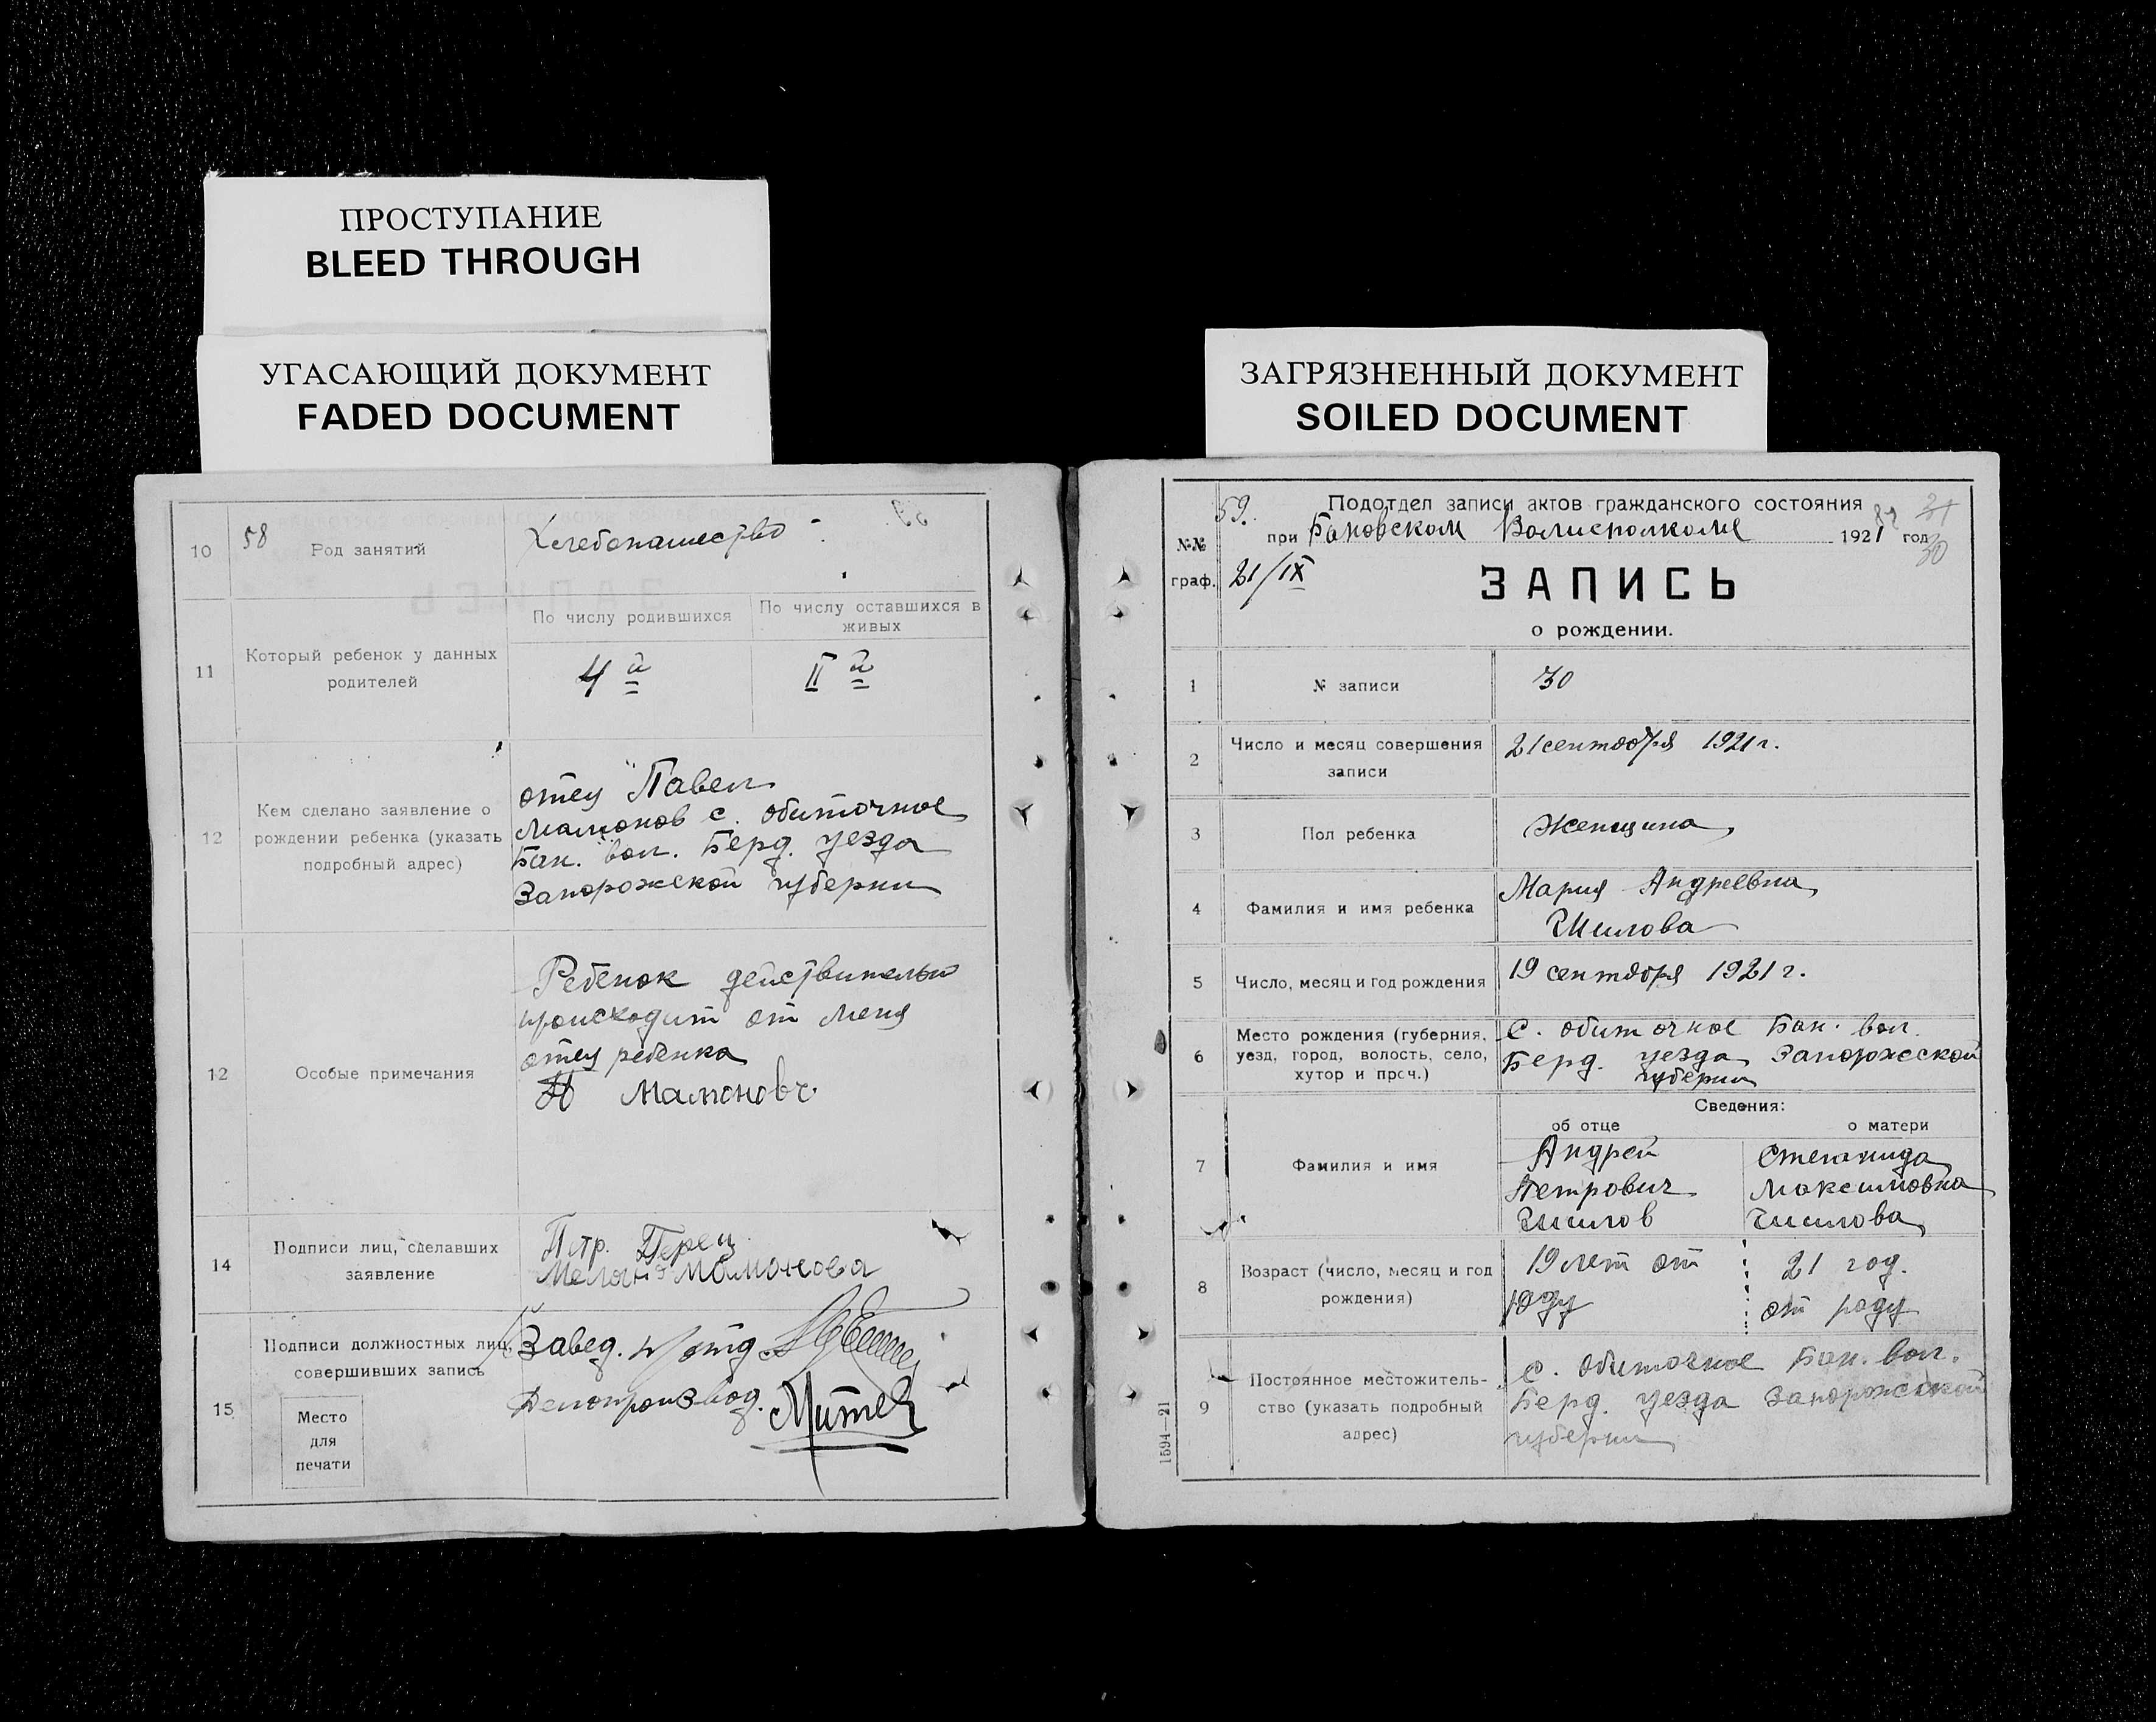 ПРОСТУПАНИЕ
BLEED THROUGH
УГАСАЮЩИЙ ДОКУМЕНТ
FADED DOCUMENT
10
58
Род занятий
Хлебопашество
11
Который ребенок у данных
родителей
По числу родившихся
По числу оставшихся в
живых
4 й
II й
12
Кем сделано заявление о
рождении ребенка (указать
подробный адрес)
отец Павел
Мамонов с. Обиточное
Бан. вол. Берд. уезда
Запорожской губернии
12
Особые примечания
Ребенок действительно
происходит от меня
отец ребенка
П Мамоновъ
14
Подписи лиц, сделавших
заявление
Петр.
Мамонова
15
Подписи должностных лиц,
совершивших запись
Место
для
печати
Завед. п/отд.
Делопроизвод.
ЗАГРЯЗНЕННЫЙ ДОКУМЕНТ
SOILED DOCUMENT
59.
Подотдел записи актов гражданского состояния
при Бановском Волисполкоме 1921 год
№№
граф.
21/IX
30
ЗАПИСЬ
о рождении.
1
№ записи
30
2
Число и месяц совершения
записи
21 сентября 1921 г.
3
Пол ребенка
Женщина
4
Фамилия и имя ребенка
Мария Андреевна
Шилова
5
Число, месяц и год рождения
19 сентября 1921 г.
6
Место рождения (губерния,
уезд, город, волость, село,
хутор и проч.)
с. Обиточное Бан. вол.
Берд. уезда Запорожской
губернии
7
Фамилия и имя
Сведения:
об отце
о матери
Андрей
Петрович
Шилов
Степанида
Максимовна
Шилова
8
Возраст (число, месяц и год
рождения)
19 лет от
роду
21 год.
от роду
9
Постоянное местожитель-
ство (указать подробный
адрес)
с. Обиточное Бан. вол.
Берд. уезда Запорожской
губернии
1594—21